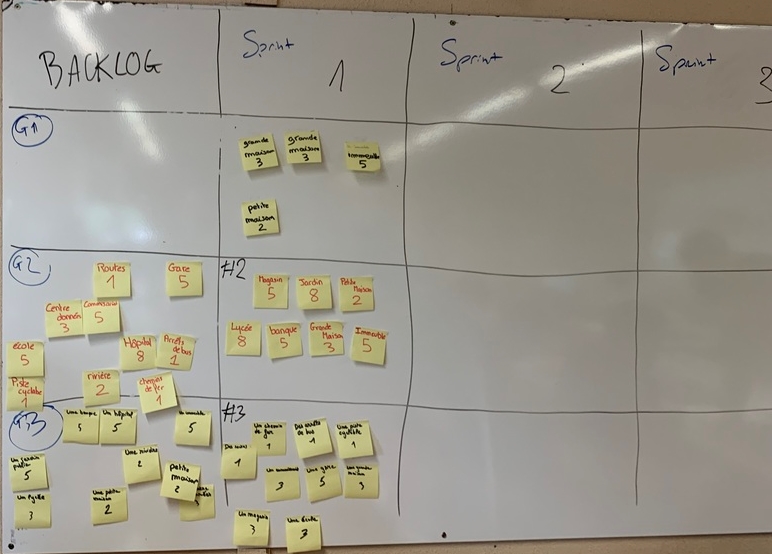 BACKLOG
Sprint
1
Sprint
2
Sprint
3
G1
grande
maison
3
grande
maison
3
immeuble
5
petite
maison
2
G2
Routes
1
Gare
5
Centre
3
5
école
5
Hôpital
8
Arrêts
de bus
1
Piste
cyclable
1
rivière
2
chemins
de fer
1
#2
Magasin
5
Jardin
8
Petite
Maison
2
Lycée
8
banque
5
Grande
Maison
3
Immeuble
5
G3
Une banque
5
Un hôpital
5
5
Un jardin
public
5
Une rivière
2
petite
maison
2
Un lycée
3
Une petite
maison
2
#3
Un chemin
de fer
1
Des arrêts
de bus
1
Une piste
cyclable
1
1
3
Une gare
5
Une grande
maison
3
Un magasin
3
Une école
3